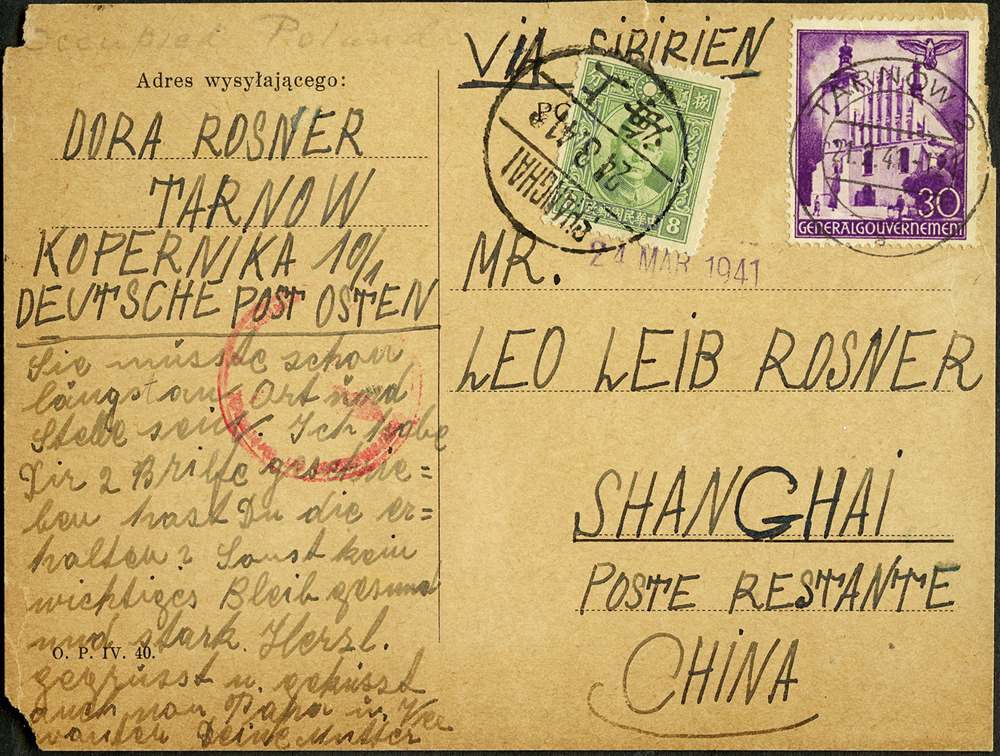 Occupied Poland
Adres wysyłającego:
DORA ROSNER
TARNOW
KOPERNIKA 10/1
DEUTSCHE POST OSTEN
Sie müsste schon
längst an Ort und
Stelle sein. Ich habe
Dir 2 Brife geschrie=
ben hast Du die er=
halten? Sonst kein
wichtiges Bleib gesund
und stark. Herzl.
gegrüsst u. geküsst
auch von Papa u. Ver
wanten Deine Mutter
O. P. IV. 40.
VIA SIBIRIEN
上海
24.3.41
SHANGHAI
捌
分
中華民國郵政
8
TARNOW 2
21. 41
30
GENERALGOUVERNEMENT
24 MAR 1941
MR.
LEO LEIB ROSNER
SHANGHAI
POSTE RESTANTE
CHINA